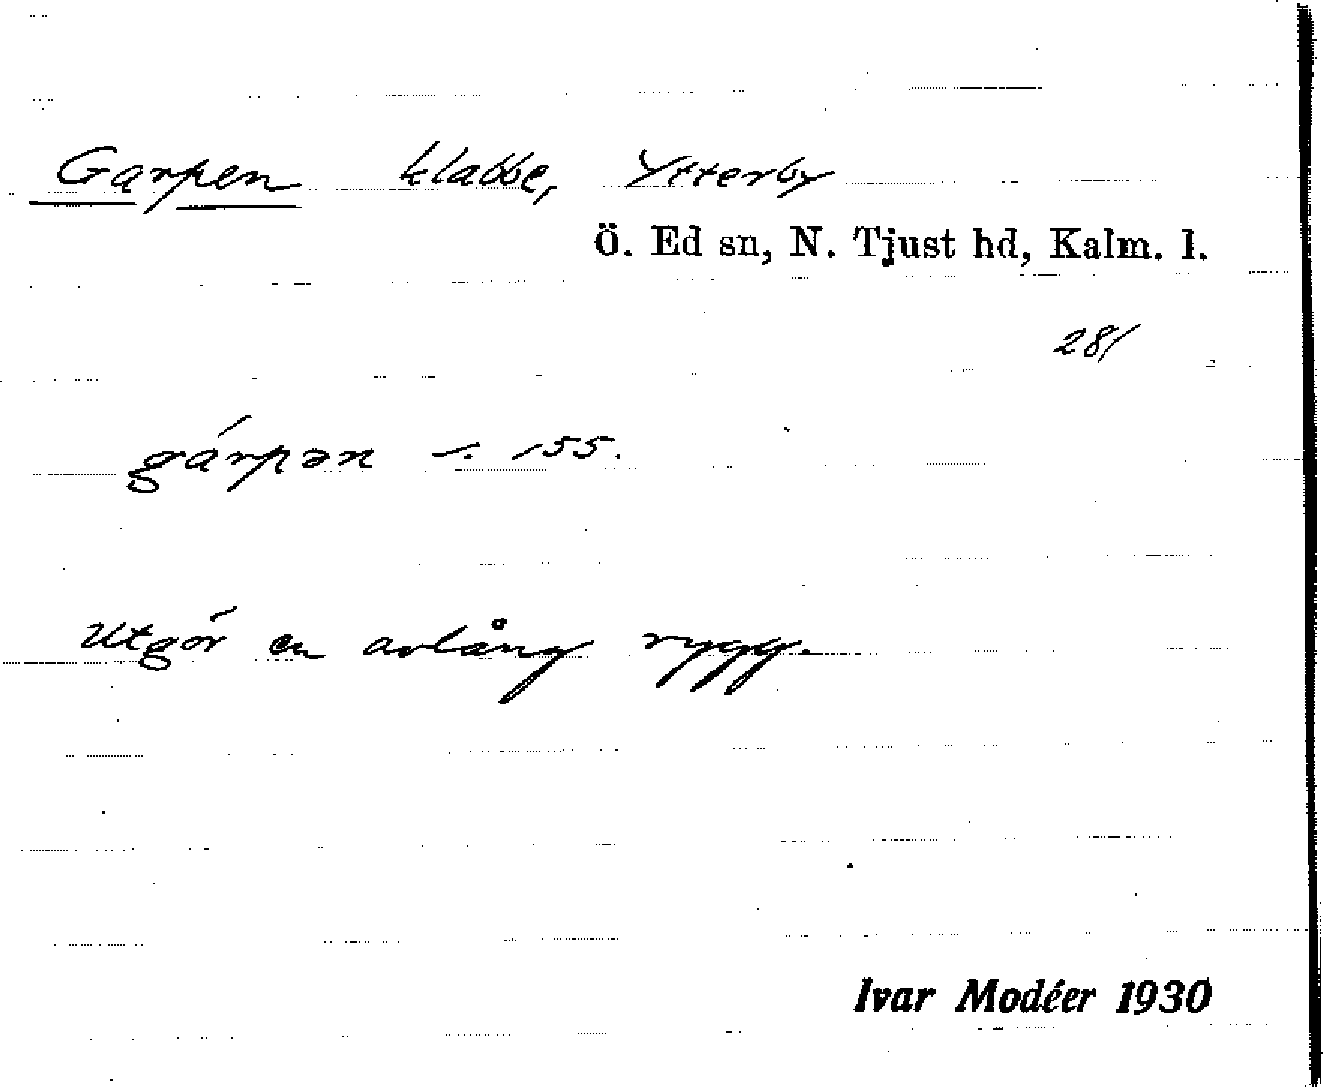 Garpen klabbe, Ytterby
Ö. Ed sn, N. Tjust hd, Kalm. l.
281
gárpən s. 155.
Utgör en avlång rygg.
Ivar Modéer 1930